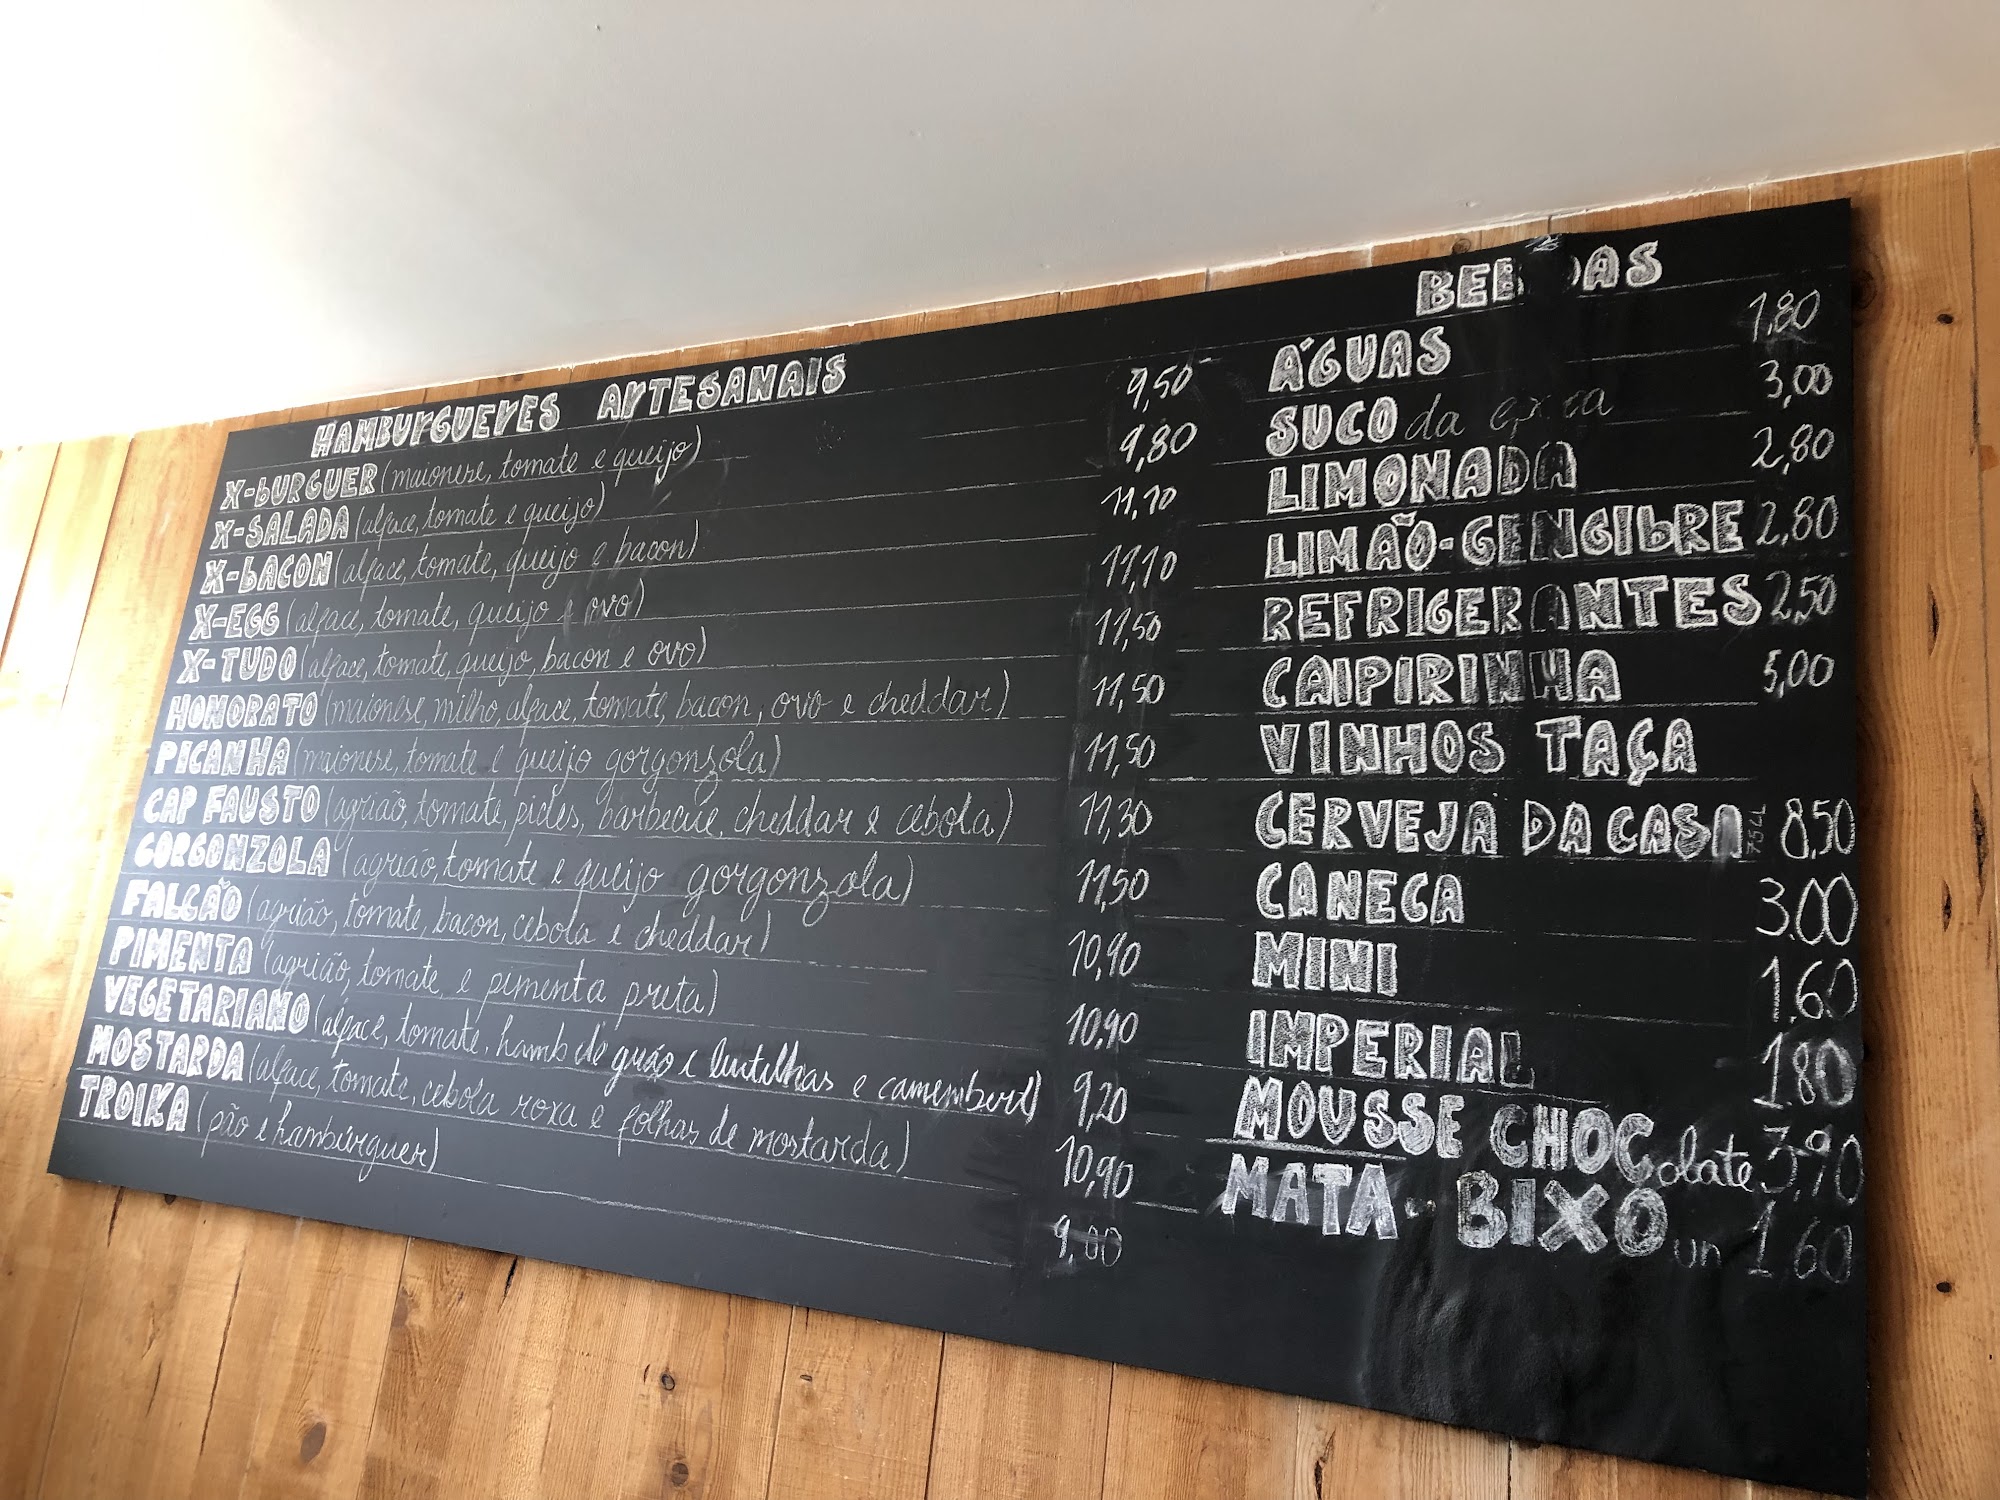 HAMBURGUERES ARTESANAIS
X-BURGUER (maionese, tomate e queijo) 9,50
X-SALADA (alface, tomate e queijo) 9,80
X-BACON (alface, tomate, queijo e bacon) 11,10
X-EGG (alface, tomate, queijo e ovo) 11,10
X-TUDO (alface, tomate, queijo, bacon e ovo) 11,50
HONORATO (maionese, milho, alface, tomate, bacon, ovo e cheddar) 11,50
PICANHA (maionese, tomate e queijo gorgonzola) 11,50
CAP FAUSTO (agrião, tomate, picles, barbecue, cheddar e cebola) 11,30
GORGONZOLA (agrião, tomate e queijo gorgonzola) 11,50
FALCÃO (agrião, tomate, bacon, cebola e cheddar) 10,90
PIMENTA (agrião, tomate e pimenta preta) 10,90
VEGETARIANO (alface, tomate, hamb de grão e lentilhas e camembert) 9,20
MOSTARDA (alface, tomate, cebola roxa e folhas de mostarda) 10,90
TROIKA (pão e hambúrguer) 9,00
BEBIDAS
ÁGUAS 1,80
SUCO da época 3,00
LIMONADA 2,80
LIMÃO-GENGIBRE 2,80
REFRIGERANTES 2,50
CAIPIRINHA 5,00
VINHOS TAÇA
CERVEJA DA CASA 75CL 8,50
CANECA 3.00
MINI 1.60
IMPERIAL 1.80
MOUSSE CHOColate 3,90
MATA-BIXO un 1.60